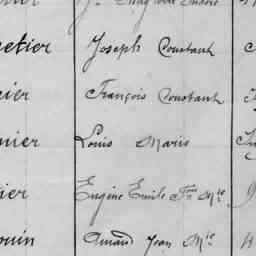 etier Joseph Constant
ier François Constant
nier Louis Marie
ier Eugène Emile Fçs Mie
ouin Amand Jean Mie